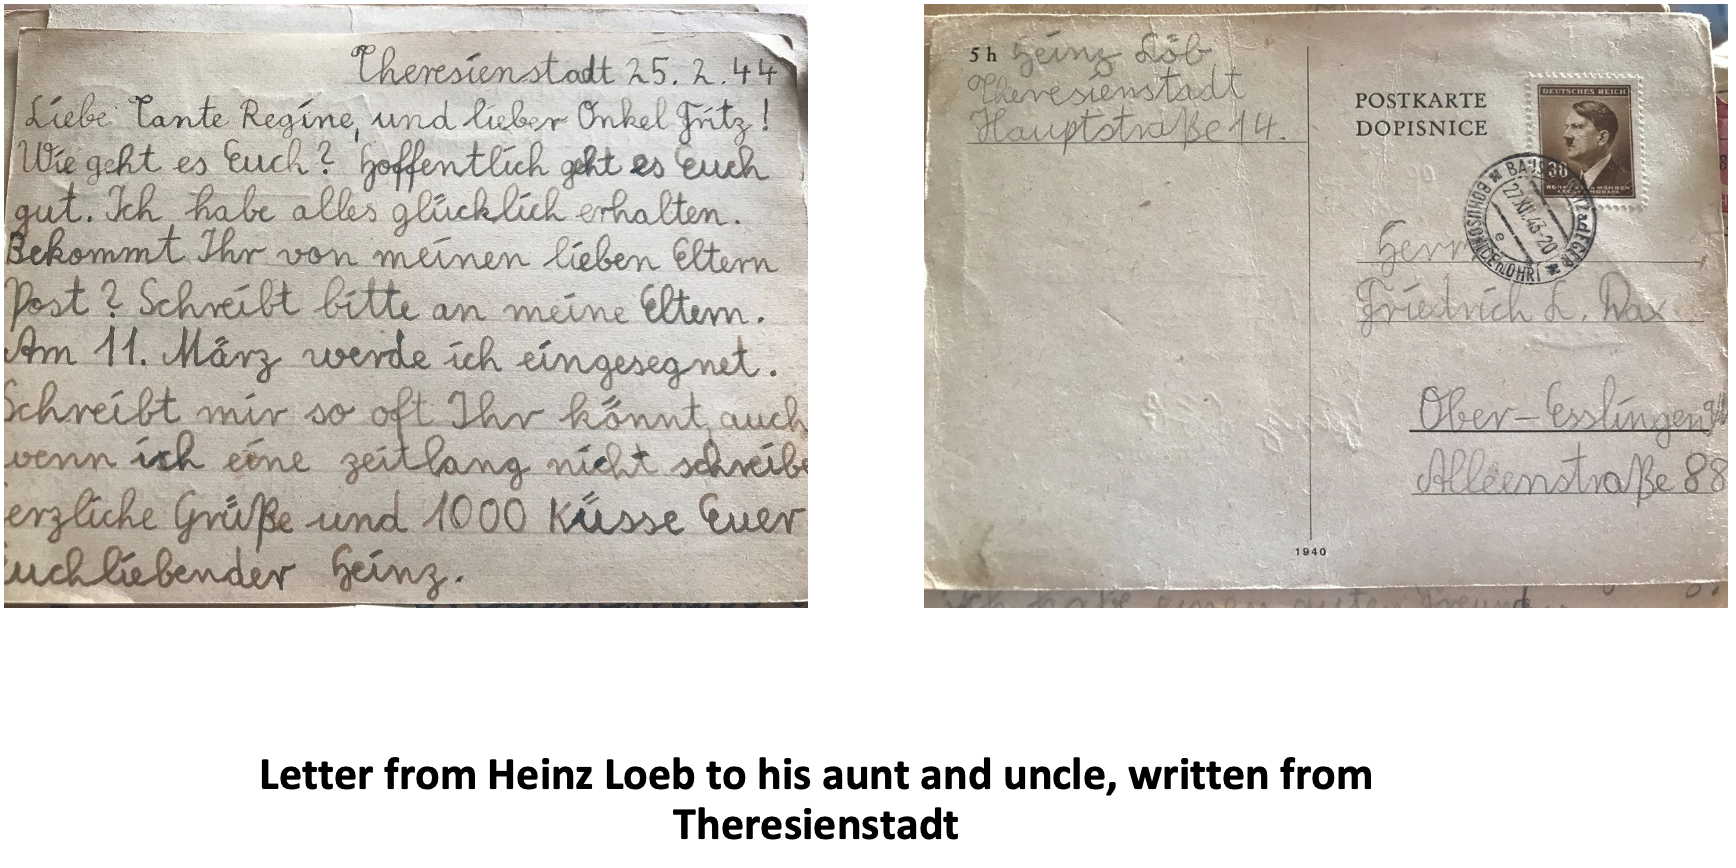 Theresienstadt 25. 2. 44
Liebe Tante Regine, und lieber Onkel Fritz!
Wie geht es Euch? Hoffentlich geht es Euch
gut. Ich habe alles glücklich erhalten.
Bekommt Ihr von meinen lieben Eltern
Post? Schreibt bitte an meine Eltern.
Am 11. März werde ich eingesegnet.
Schreibt mir so oft Ihr könnt, auch
wenn ich eine zeitlang nicht schreibe
erzliche Grüße und 1000 Küsse Euer
uchliebender Heinz.
5 h Heinz Löb
Theresienstadt
Hauptstraße 14.
POSTKARTE
DOPISNICE
DEUTSCHES REICH
Herrn
Friedrich L. Wax
Ober-Esslingen
Alleenstraße 88
1940
Letter from Heinz Loeb to his aunt and uncle, written from
Theresienstadt